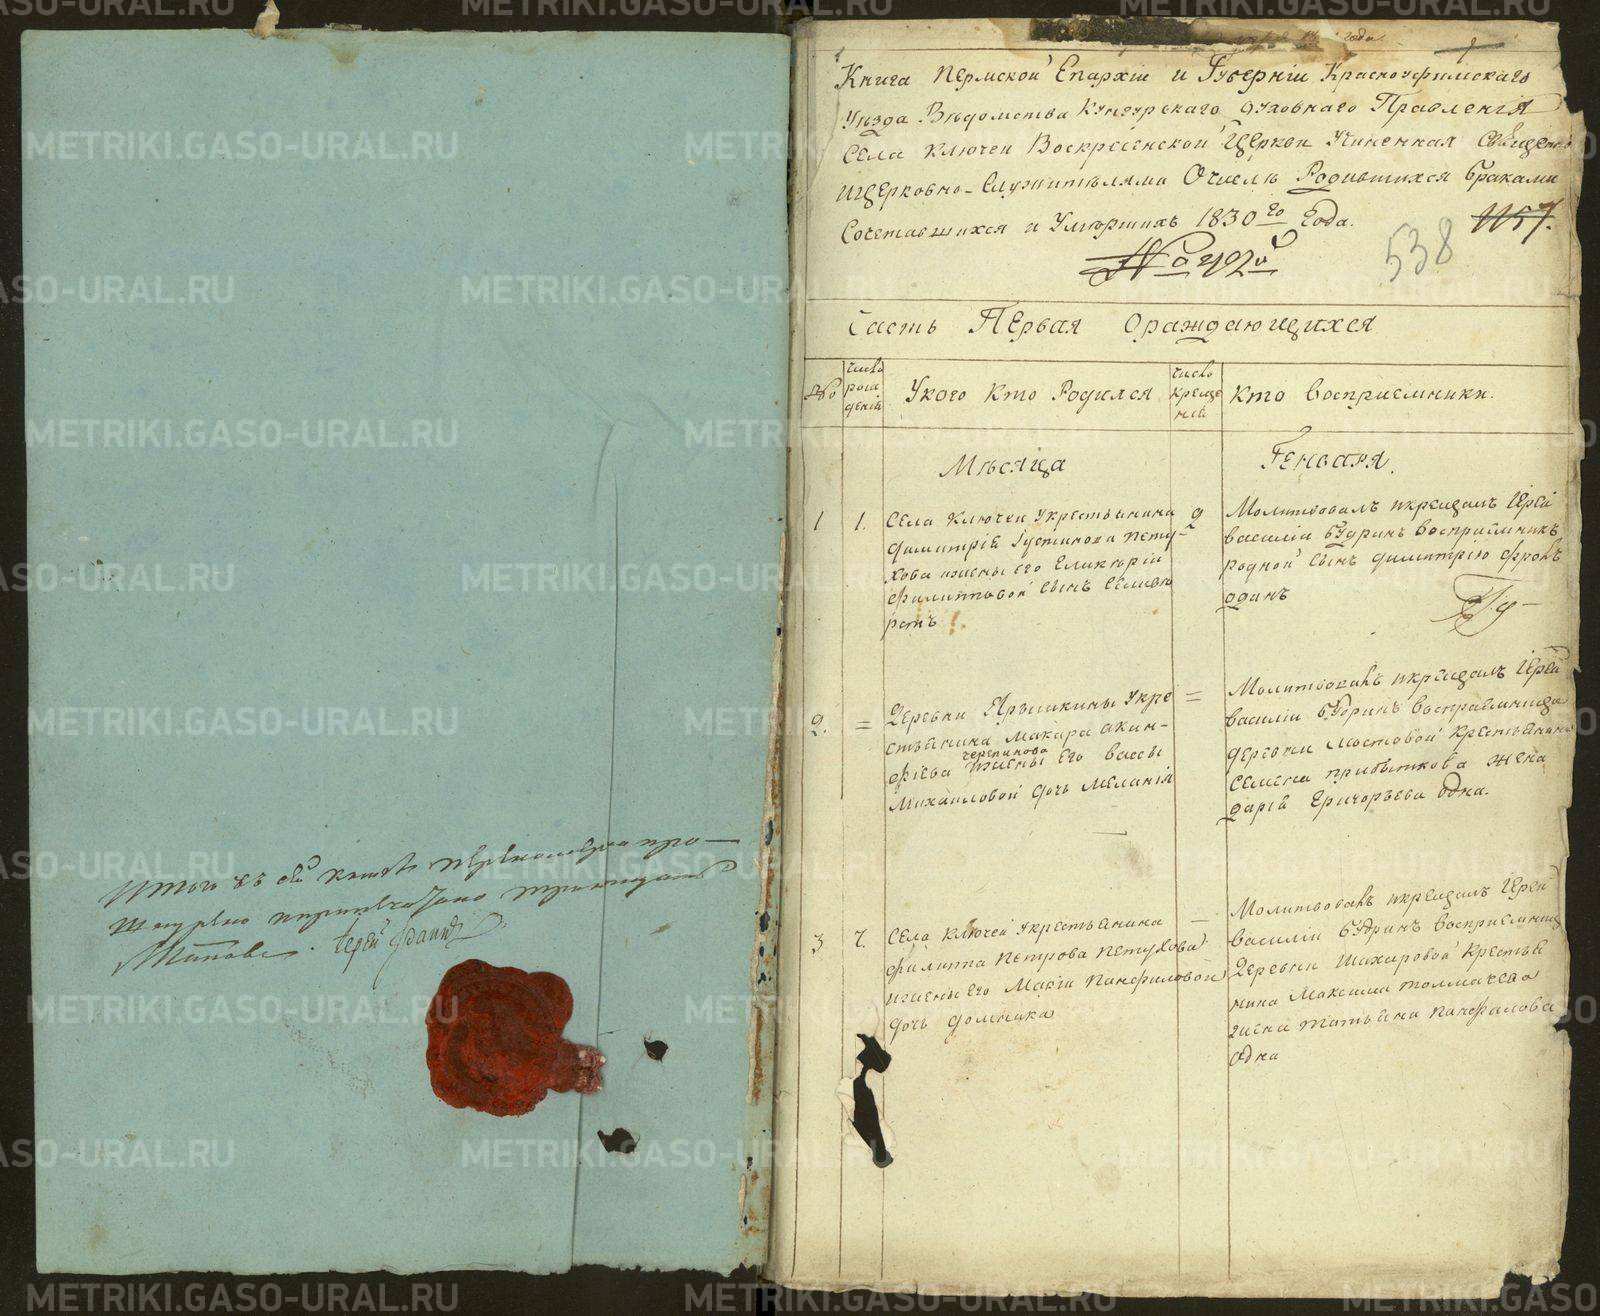 Итого въ сей книгѣ
Іерей
года
1
Книга Пермской Епархіи и Губерніи Красноуфимскаго
Уѣзда Вѣдомства Кунгурскаго духовнаго Правленія
Села Ключей Воскресенской Церкви Учиненная Священно
ицерковно-Служителями Очислѣ Родившихся Браками
Сочетавшихся и Умершихъ 1830го Года.
1157.
538
Часть Первая Ораждающихся
№
число рождений
Укого Кто Родился
число крещений
Кто восприемники.
Мѣсяца
Генваря.
1
1.
Села Ключей укрестьянина
димитрія Густинова пету-
хова ижены его Гликѣріи
филипповой сынъ Селивѣ
рстъ
2
Молитвовалъ икрещалъ Іерей
василій Будринъ восприемникъ
родной сынъ димитрію
одинъ
2.
=
Деревни Ярышкины укре
стьянина Макара Акин-
черепанова
фіева ижены его вассы
Михаиловой дочь Меланія
=
Молитвовалъ икрещалъ Іерей
василій Будринъ восприемница
деревни мостовой крестьянина
Семена прибыткова жена
дарія Григорьева одна.
3
7.
Села Ключей укрестьянина
филиппа Петрова Петухова
ижены его Маріи Панфиловой
дочь домника
—
Молитвовалъ икрещалъ Іерей
василій Будринъ восприемница
Деревни Шахаровой крестья
нина Максима толмачева
жена татьяна панфилова
одна
METRIKI.GASO-URAL.RU